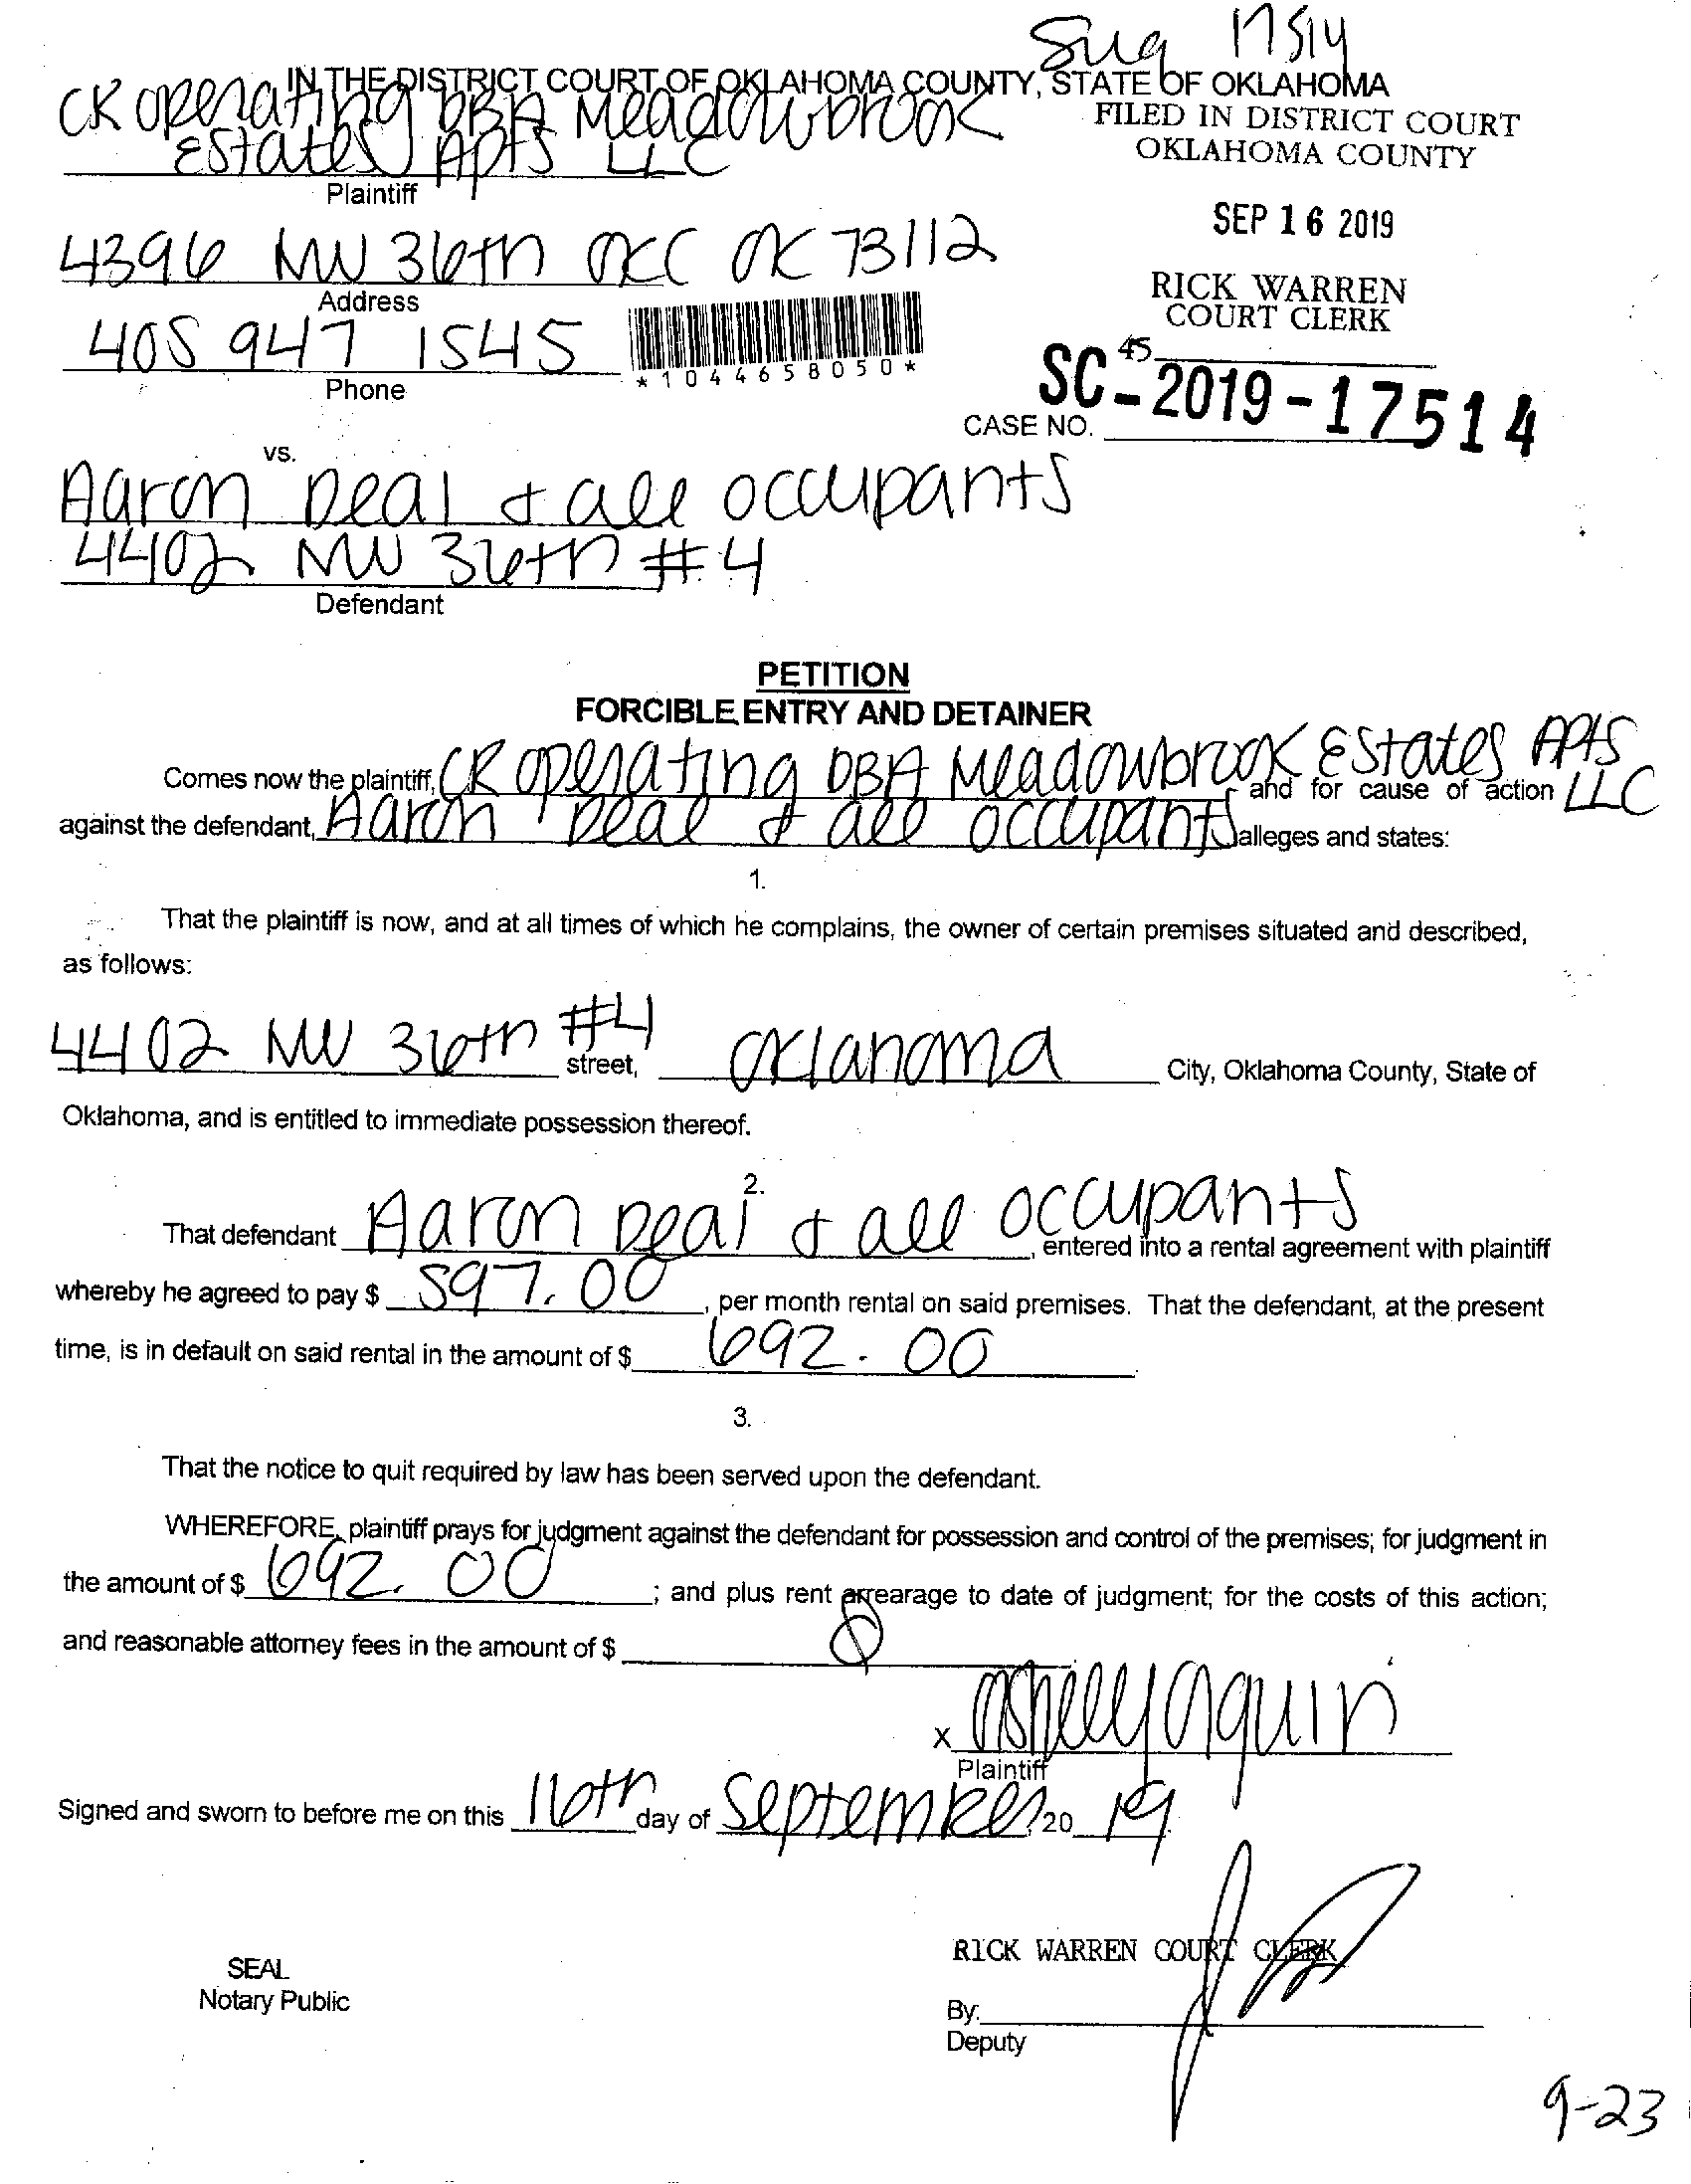 Sug 17514
IN THE DISTRICT COURT OF OKLAHOMA COUNTY, STATE OF OKLAHOMA
CK operating DBA Meadowbrook
Estates Apts LLC
Plaintiff
FILED IN DISTRICT COURT
OKLAHOMA COUNTY
SEP 16 2019
RICK WARREN
COURT CLERK
4396 NW 36th OKC OK 73112
Address
405 947 1545
Phone
*1044658050*
45
SC-2019-17514
CASE NO.
vs.
Aaron Deal & all occupants
4402 NW 36th #4
Defendant
PETITION
FORCIBLE ENTRY AND DETAINER
Comes now the plaintiff, CK operating DBA Meadowbrook Estates Apts LLC and for cause of action
against the defendant, Aaron Deal & all occupants alleges and states:
1.
That the plaintiff is now, and at all times of which he complains, the owner of certain premises situated and described,
as follows:
4402 NW 36th #4 street, Oklahoma City, Oklahoma County, State of
Oklahoma, and is entitled to immediate possession thereof.
2.
That defendant Aaron Deal & all occupants, entered into a rental agreement with plaintiff
whereby he agreed to pay $ 597.00, per month rental on said premises. That the defendant, at the present
time, is in default on said rental in the amount of $ 692.00
3.
That the notice to quit required by law has been served upon the defendant.
WHEREFORE, plaintiff prays for judgment against the defendant for possession and control of the premises; for judgment in
the amount of $ 692.00; and plus rent arrearage to date of judgment; for the costs of this action;
and reasonable attorney fees in the amount of $ 0
x
Plaintiff
Signed and sworn to before me on this 16th day of September, 20 19
RICK WARREN COURT CLERK
SEAL
Notary Public
By:
Deputy
9-23